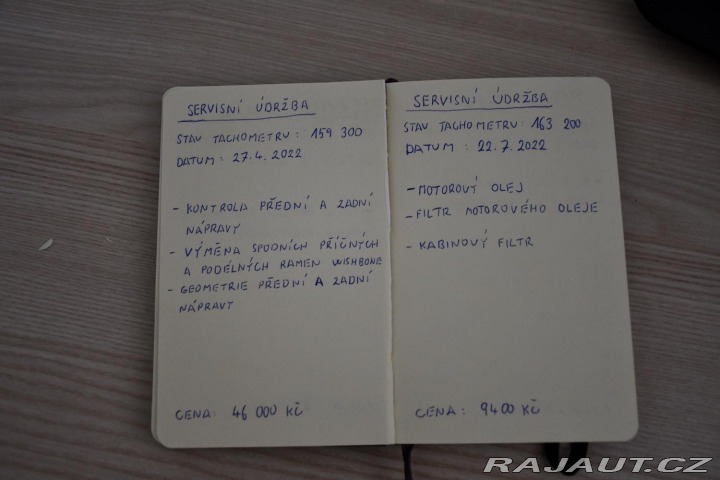 SERVISNÍ ÚDRŽBA
STAV TACHOMETRU: 159 300
DATUM: 27.4. 2022
- KONTROLA PŘEDNÍ A ZADNÍ
NÁPRAVY
- VÝMĚNA SPODNÍCH PŘÍČNÝCH
A PODÉLNÝCH RAMEN WISHBONE
- GEOMETRIE PŘEDNÍ A ZADNÍ
NÁPRAVY
CENA: 46 000 KČ
SERVISNÍ ÚDRŽBA
STAV TACHOMETRU: 163 200
DATUM: 22.7.2022
- MOTOROVÝ OLEJ
- FILTR MOTOROVÉHO OLEJE
- KABINOVÝ FILTR
CENA: 9400 KČ
RAJAUT.CZ